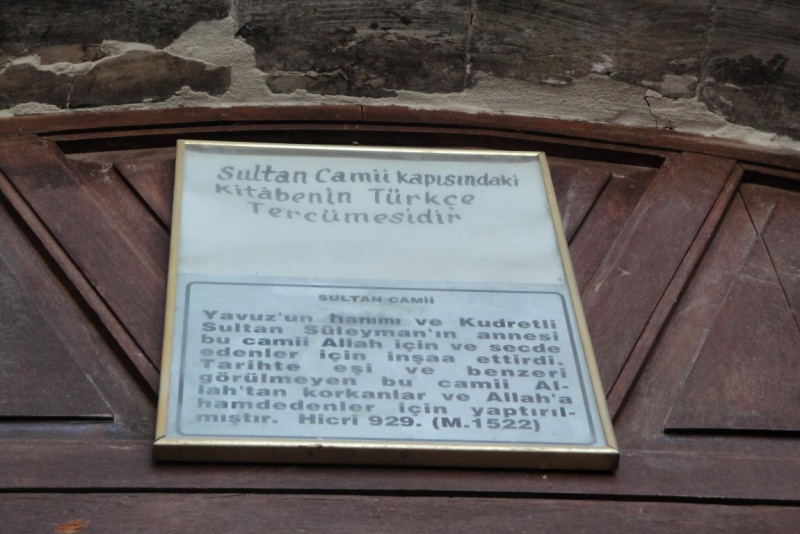 Sultan Camii kapısındaki
Kitâbenin Türkçe
Tercümesidir
SULTAN CAMİİ
Yavuz'un hanımı ve Kudretli
Sultan Süleyman'ın annesi
bu camii Allah için ve secde
edenler için inşaa ettirdi.
Tarihte eşi ve benzeri
görülmeyen bu camii Al-
lah'tan korkanlar ve Allah'a
hamdedenler için yaptırıl-
mıştır. Hicri 929. (M.1522)